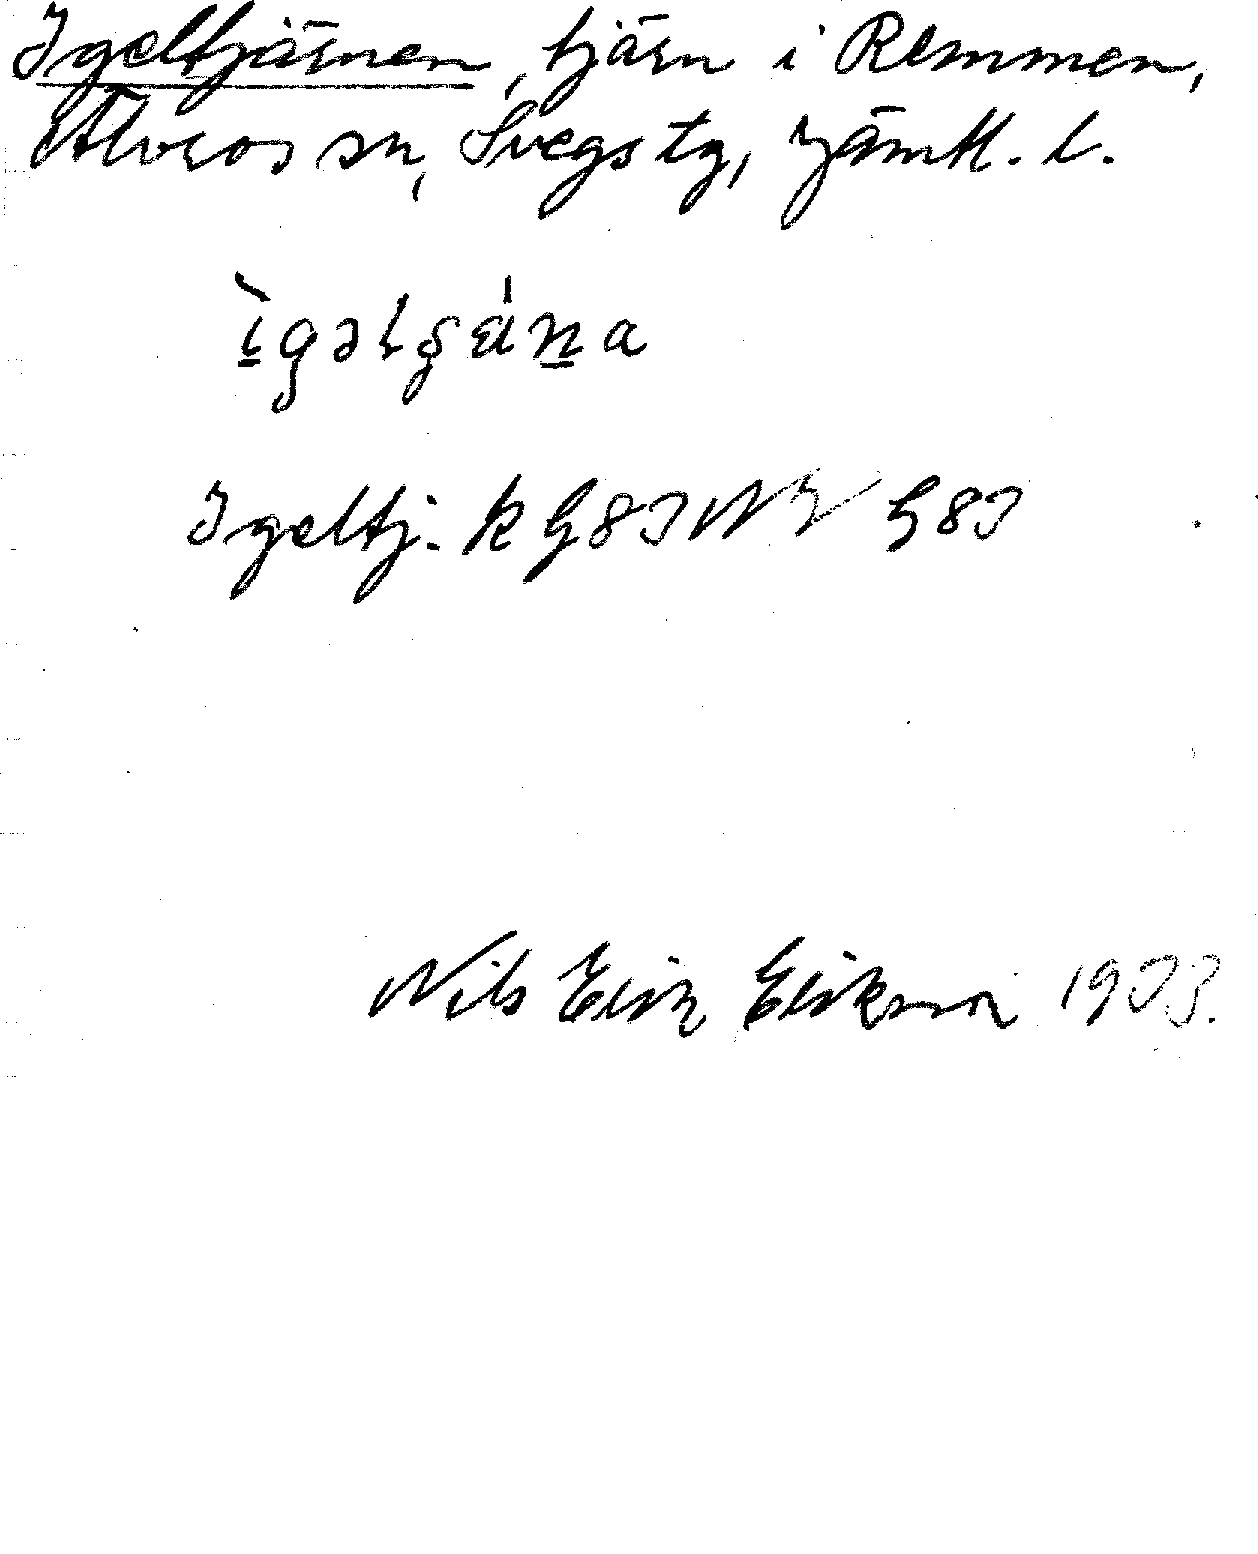 Igeltjärnen, tjärn i Remmen,
Älvros sn, Svegs tg, Jämtl. l.
ìgəlʂɛ́n̠a
Igeltj. k G8J NV G8J
Nils Erik Erikson 1973.